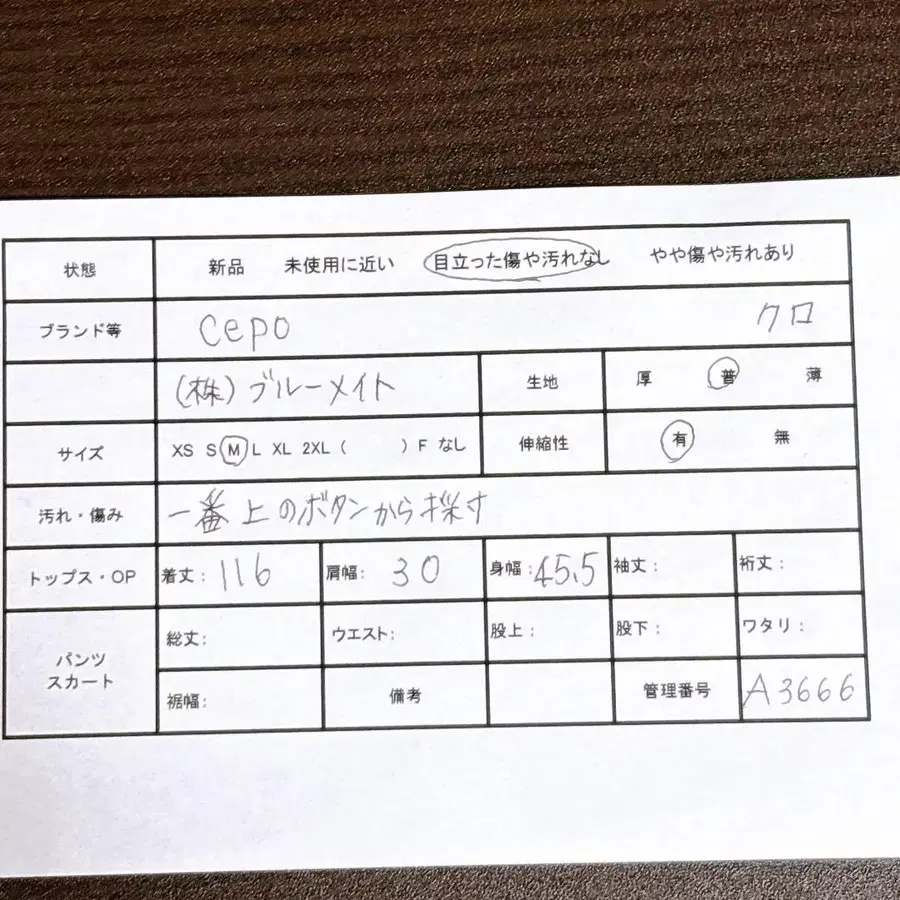 状態 新品 未使用に近い 目立った傷や汚れなし やや傷や汚れあり
ブランド等 cepo クロ
(株)ブルーメイト 生地 厚 普 薄
サイズ XS S M L XL 2XL ( ) F なし 伸縮性 有 無
汚れ・傷み 一番上のボタンから採寸
トップス・OP 着丈: 116 肩幅: 30 身幅: 45.5 袖丈: 裄丈:
パンツ スカート 総丈: ウエスト: 股上: 股下: ワタリ:
裾幅: 備考 管理番号 A3666